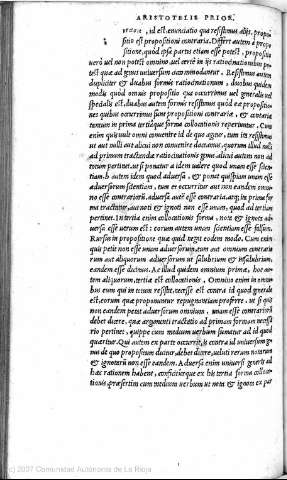 ARISTOTELIS PRIOR.
, id est enunciatio qua resistimus alijs, propo
sitio est propositioni contraria. Differt autem a propo
sitione, quòd ipsa partis etiam esse potest, propositio
uerò uel non potest omnino, uel certè in ijs ratiocinationibus non po
test quæ ad genus uniuersum accommodantur. Resistimus autem
dupliciter & duabus formis ratiocinationum, duobus quidem
modis quòd omnis propositio qua occurrimus uel generalis uel
specialis est. duabus autem formis resistimus quòd eæ propositio
nes quibus occurrimus sunt propositioni contraria, & contraria
tantum in prima tertiaque forma collocationis reperiuntur. Cum
enim quis uult omni conuenire id de quo agitur, tum ita resistimus
ut aut nulli aut alicui non conuenire doceamus. quorum illud nulli
ad primam tractandæ ratiocinationis, alicui autem non ad
tertiam pertinet. ut si ponatur a idem ualere quod unam esse scien
tiam. b autem idem quod aduersa, & ponet quispiam unam esse
aduersorum scientiam, tum ei occurritur aut non eandem omni
no esse contrariorum, aduersa autem esse contraria. atque in prima for
ma tractatur, aut noti & ignoti non esse unam, quod ad tertiam
pertinet. In tertia enim collocationis forma, nota & ignota ad
uersa esse uerum est: eorum autem unam scientiam esse falsum.
Rursum in propositione quæ quid negat eodem modo. Cum enim
quis petit non esse unam aduersorum, tum aut omnium contrario
rum aut aliquorum aduersorum ut salubrium & insalubrium,
eandem esse dicimus. Ac illud quidem omnium prima, hoc au
tem aliquorum, tertia est collocationis. Omnino enim in omni
bus cum quis in totum resistit, necesse est contra id quod generale
est, eorum quæ proponuntur repugnantiam proferre. ut si quis
non eandem petat aduersorum omnium, unam esse contrariorum
debet dicere. quæ argumenti tractatio ad primam formam necessa
riò pertinet, quippe cum medium uerbum sumatur ad id quod
quæritur. Qui autem ex parte occurrit, is contra id uniuersum ge
nus de quo propositum dicitur, debet dicere, ueluti rerum notarum
& ignotarum non esse eandem. Aduersa enim uniuersi generis ad
hæc rationem habent, conficiturque ex his tertia forma colloca
tionis, præsertim cum medium uerbum ut nota & ignota ex par
(c) 2007 Comunidad Autónoma de La Rioja